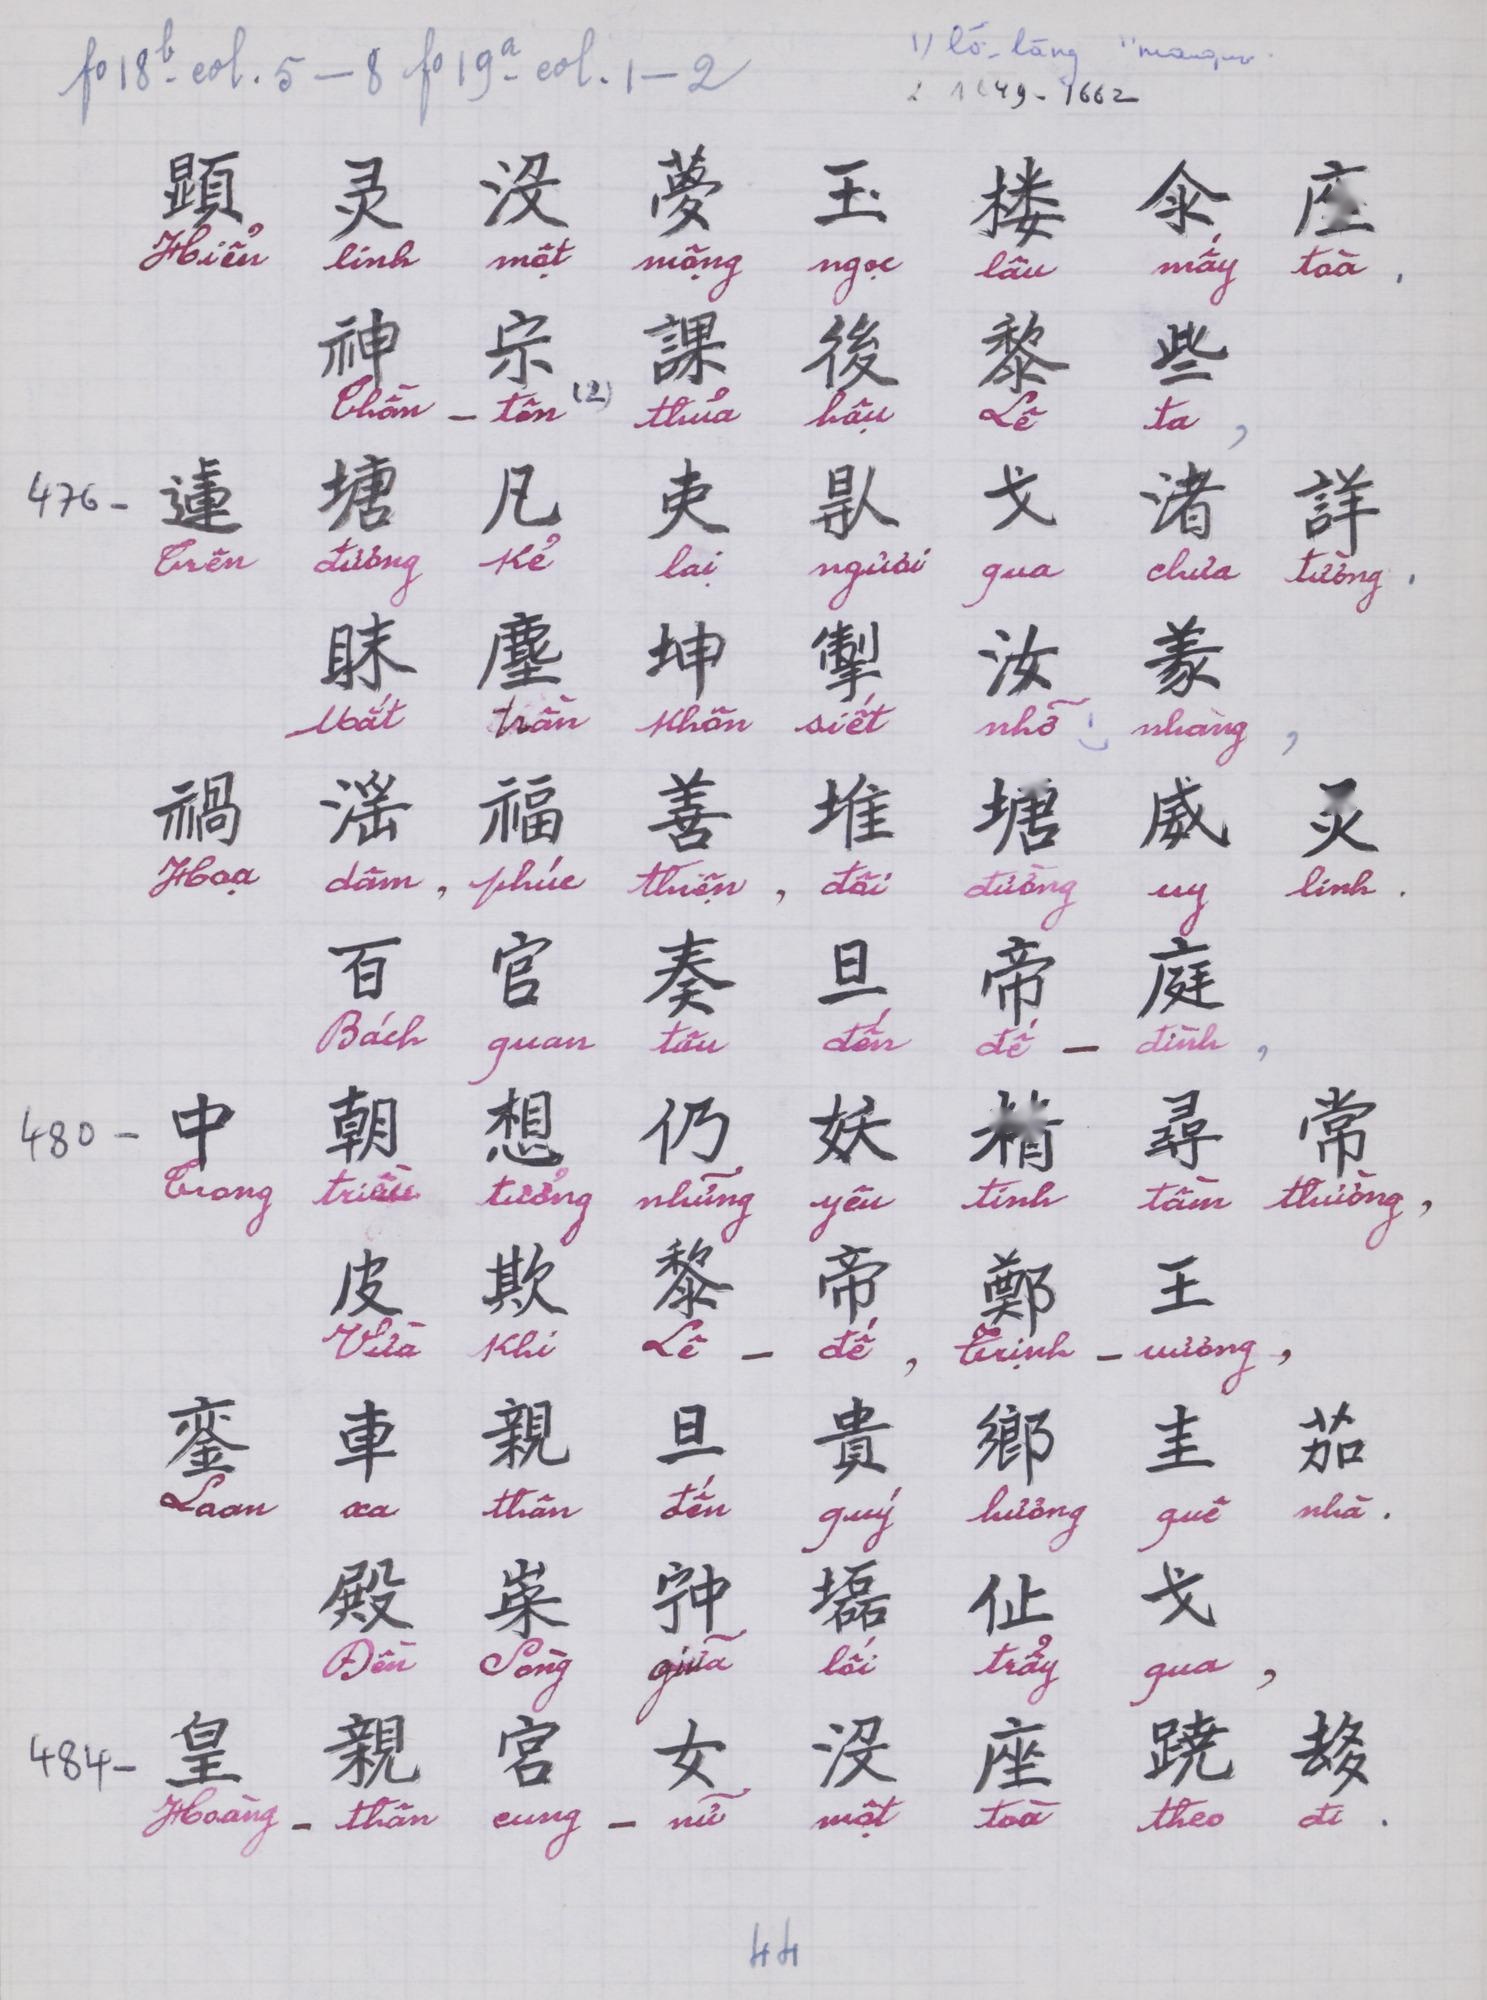 fo 18b - col. 5 – 8 fo 19a - col. 1 – 2
1) lố - lăng
1649 - 1662
顕 灵 沒 夢 玉 楼 伞 座
Hiển linh một mộng ngọc lâu mấy toà .
神 宗 課 後 黎 些
Thần – tôn (2) thủa hậu Lê ta ,
476 – 蓮 塘 凡 吏 㝵 戈 渚 詳
Trên đường kẻ lại người qua chưa tường .
眜 塵 坤 掣 汝
Mắt trần khôn siết nhỡ nhàng ,
禍 滛 福 善 堆 塘 威 灵
Hoạ dâm , phúc thiện , đôi đường uy linh .
百 官 奏 旦 帝 庭
Bách quan tâu đến đế – đình ,
480 – 中 朝 想 仍 妖 精 尋 常
Trong triều tưởng những yêu tinh tầm thường ,
皮 欺 黎 帝 鄭 王
Vừa khi Lê – đế , Trịnh – vương ,
銮 車 親 旦 貴 鄉 圭 茹
Loan xa thân đến quý hương quê nhà .
殿 崇 𡨌 磊 㐌 戈
Đền Sòng giữa lối trẩy qua ,
484 – 皇 親 宮 女 沒 座 蹺 𠫾
Hoàng – thân cung – nữ một toà theo đi .
44